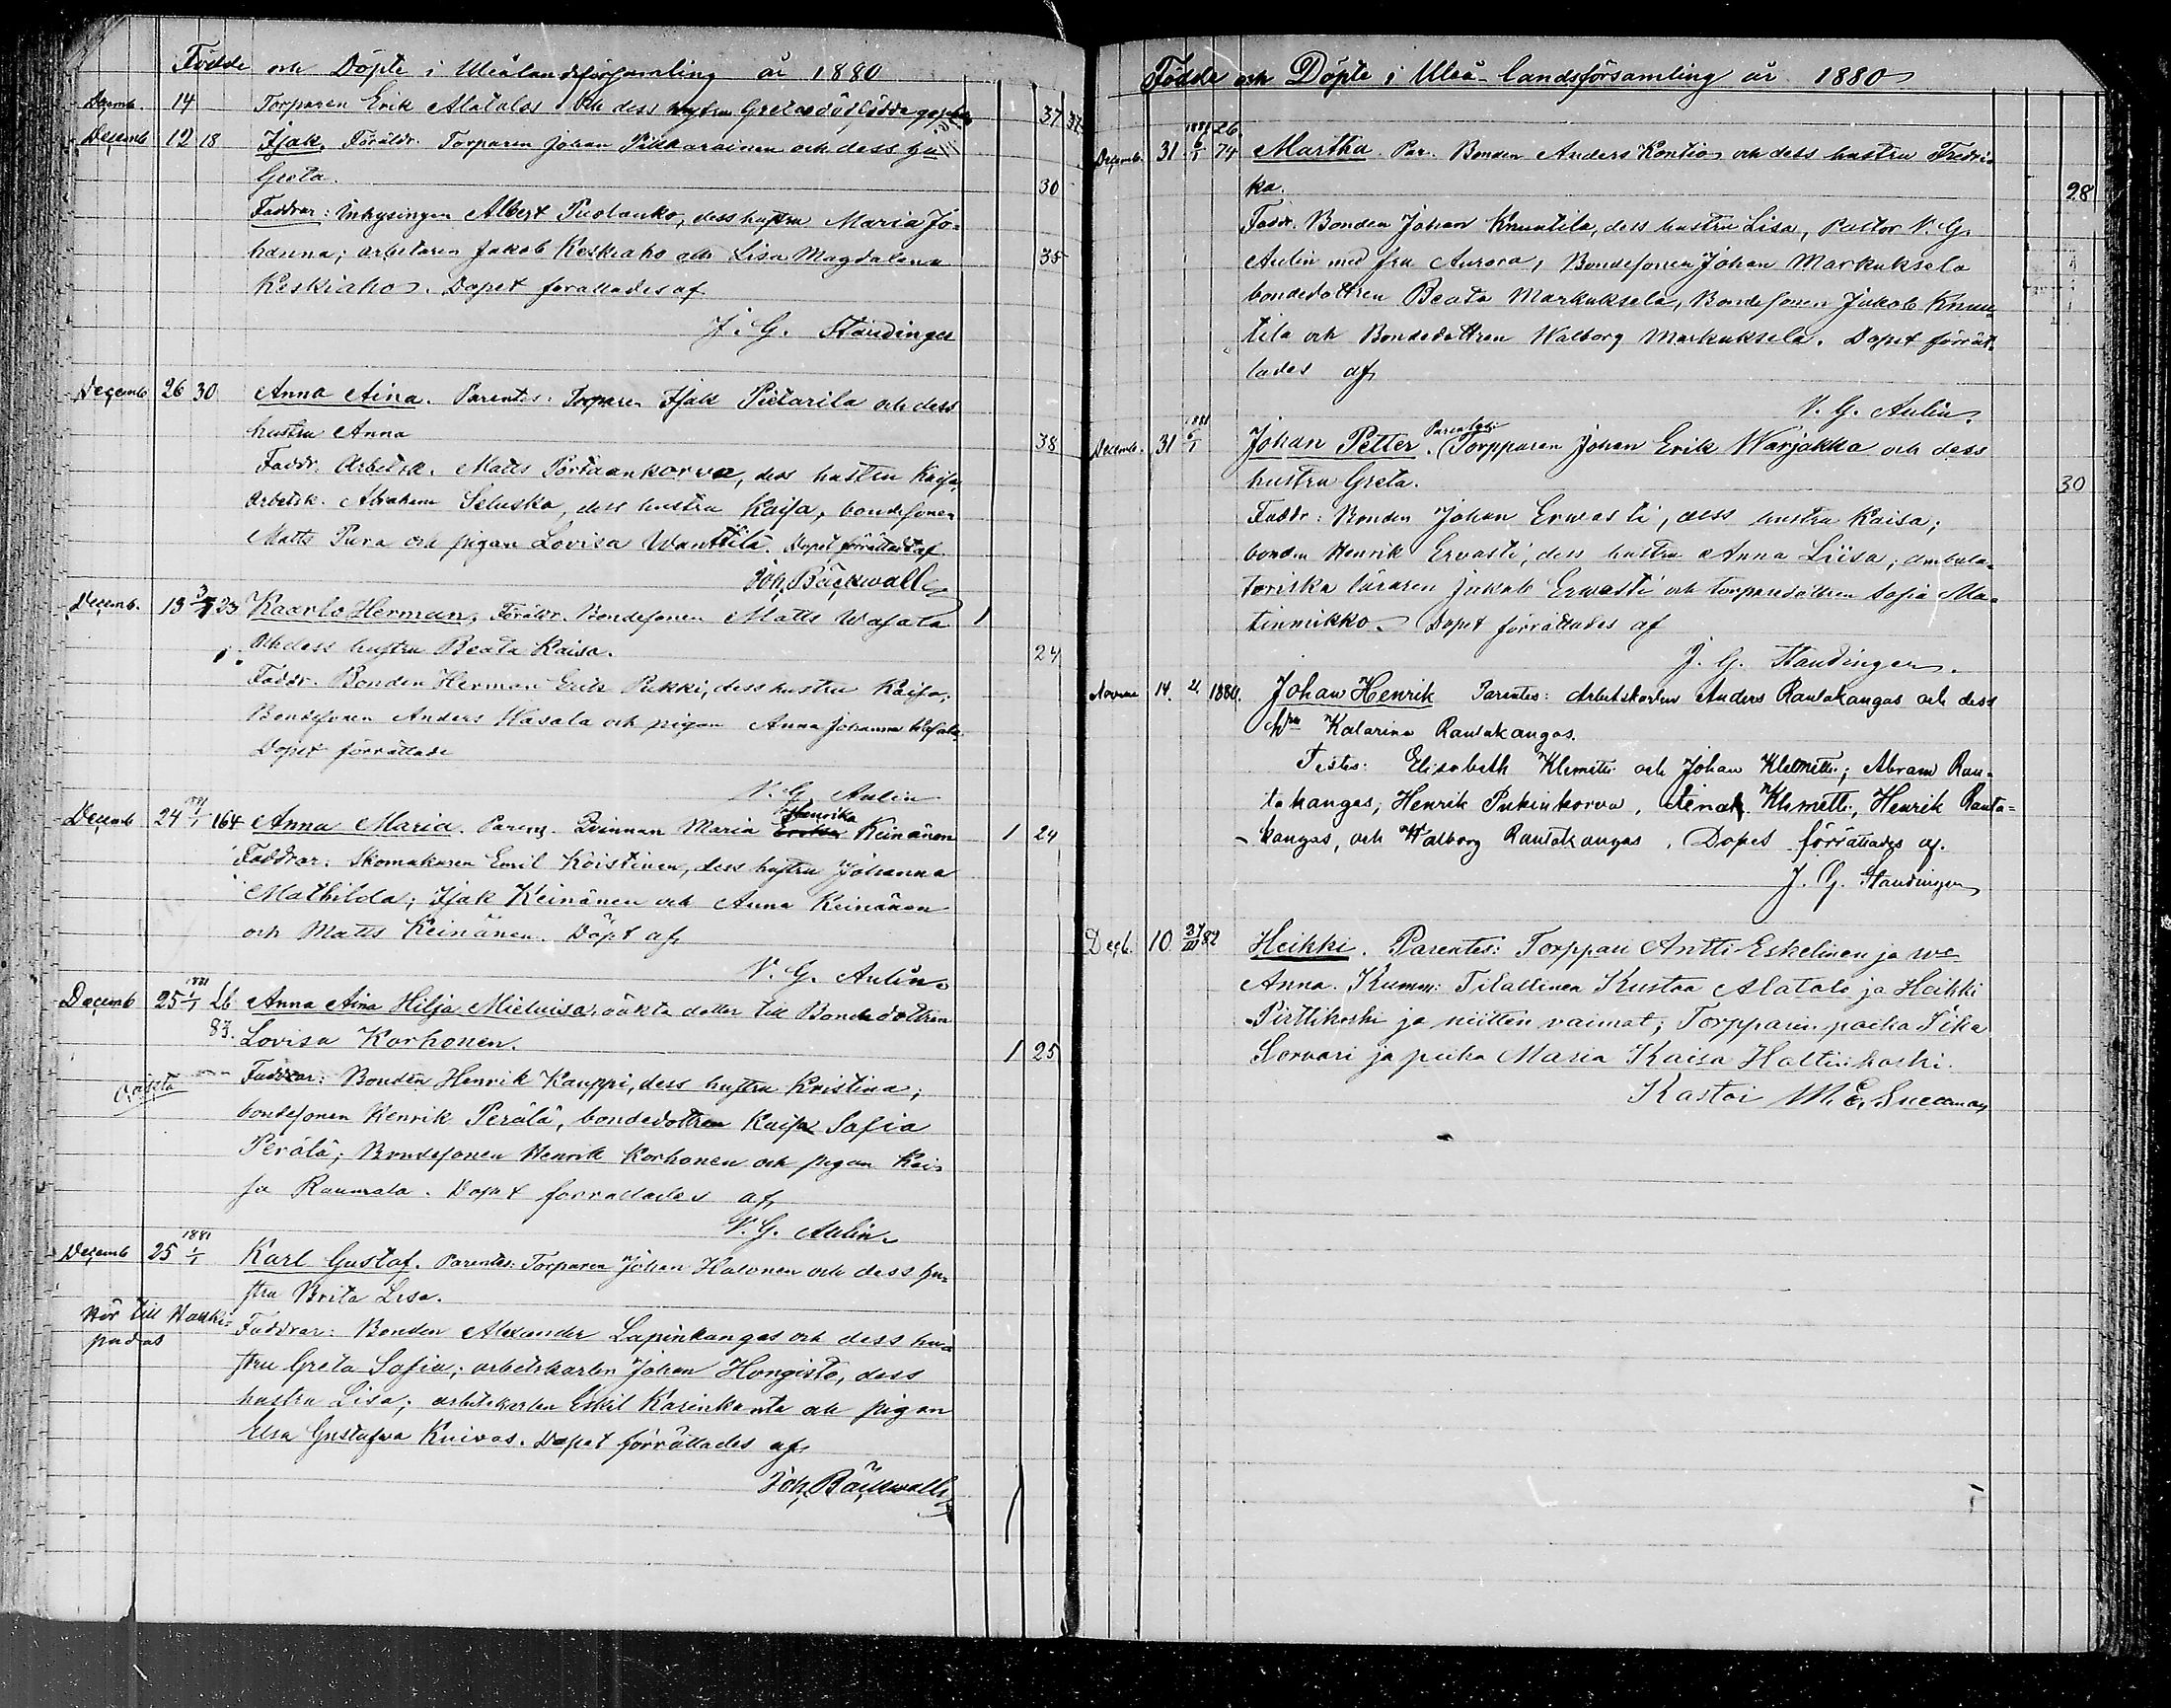 Födde och Döpte i Uleålandsförsamling år 1880
Decemb. 14 Torparen Erik Alatalos och dess hustru Gretas dödfödda 37
Decemb 12 18 Isak. Föräldr. Torparen Johan Pikkarainen och dess hu
Greta. 30
Faddrar: Inhysingen Albert Puolanko, dess hustru Maria Jo-
hanna; arbetaren Jakob Keskiaho och Lisa Magdalena 35
Keskiaho. Dopet förättades af
J. G. Standinger
Decemb 26 30 Anna Aina. Parentes. Torparen Isak Pietarila och dess
hustru Anna 38
Faddr. Arbetsk. Matts Portaankorva, dess hustru Kaisa,
Arbetsk. Abraham Seluska, dess hustru Kaisa, bondesonen
Matts Pura och pigan Lovisa Wänttilä. Dopet förrättadt af
Joh. Bäckwall
Decemb. 13 3/1 23 Kaarlo Herman, Föräldr. Bondesonen Matts Wasala 1
och dess hustru Beata Kaisa. 24
Faddr. Bonden Herman Erik Pukki, dess hustru Kaisa,
Bondesonen Anders Wasala och pigan Anna Johanna Wasala.
Dopet förrättade
V. G. Aulin
Decemb 24 1881 1/1 164 Anna Maria. Parens. Qvinnan Maria Henrika Keinänen 1 24
Faddrar: Skomakaren Emil Koistinen, dess hustru Johanna
Mathilda; Isak Keinänen och Anna Keinänen
och Matts Keinänen. Döpt af
V. G. Aulin.
Decemb 25 1881 1/1 26 Anna Aina Hilja Mieluisa, oäkta dotter till Bondedottren
83. Lovisa Korhonen. 1 25
Faddrar: Bonden Henrik Kauppi, dess hustru Kristina;
bondesonen Henrik Perälä, bondedottren Kaisa Sofia
Perälä; Bondesonen Henrik Korhonen och pigan Kai-
sa Raumala. Dopet förrättades af
V. G. Aulin.
Decemb 25 1881 1/1 Karl Gustaf. Parentes: Torparen Johan Halonen och dess hu-
stru Brita Lisa.
Hör till Hauki-
pudas
Faddrar: Bonden Alexander Lapinkangas och dess hu-
stru Greta Sofia; arbetskarlen Johan Hongisto, dess
hustru Lisa; arbetskarlen Eskil Karinkanta och pigan
Elsa Gustafva Kuivas. Dopet förrättades af
Joh. Bäckwall
Födde och Döpte i Uleå landsförsamling år 1880
Decemb. 31 1881 6/1 26. 74 Martha. Par. Bonden Anders Kontio och dess hustru Fredri-
ka. 28
Faddr. Bonden Johan Knuutila, dess hustru Lisa, Pastor V. G.
Aulin med fru Aurora, Bondesonen Johan Markuksela
bondedottren Beata Markuksela, Bondesonen Jakob Knuu
tila och Bondedottren Walborg Markuksela. Dopet förrät-
tades af
V. G. Aulin.
Decemb. 31 1881 6/1 Johan Petter. Parentes: Torpparen Johan Erik Warjakka och dess
hustru Greta. 30
Faddr: Bonden Johan Erwasti, dess hustru Kaisa;
bonden Henrik Ervasti, dess hustru Anna Liisa; ambula-
toriska läraren Jakob Erwasti och torparedottren Sofia Ma-
tinmikko. Dopet förrättades af
J. G. Standinger.
14. Johan Henrik Parentes: Arbetskarlen Anders Rautakangas och dess
Katarina Rautakangas.
Testes: Elisabeth Klemetti och Johan Klemetti; Abram Rau-
takangas, Henrik Pukinkorva, Klemetti, Henrik Rauta-
kangas, och Walborg Rautakangas. Dopet förrättades af.
J. G. Standinger
Decb. 10 82 Heikki. Parentes: Torppari Antti Eskelinen ja wo
Anna. Kumm: Tilallinen Kustaa Alatalo ja Heikki
Pirttikoski ja niitten vaimot; Torpparin poika
Sorvari ja piika Maria Kaisa Holtinkoski.
Kastoi M. E. Snellman